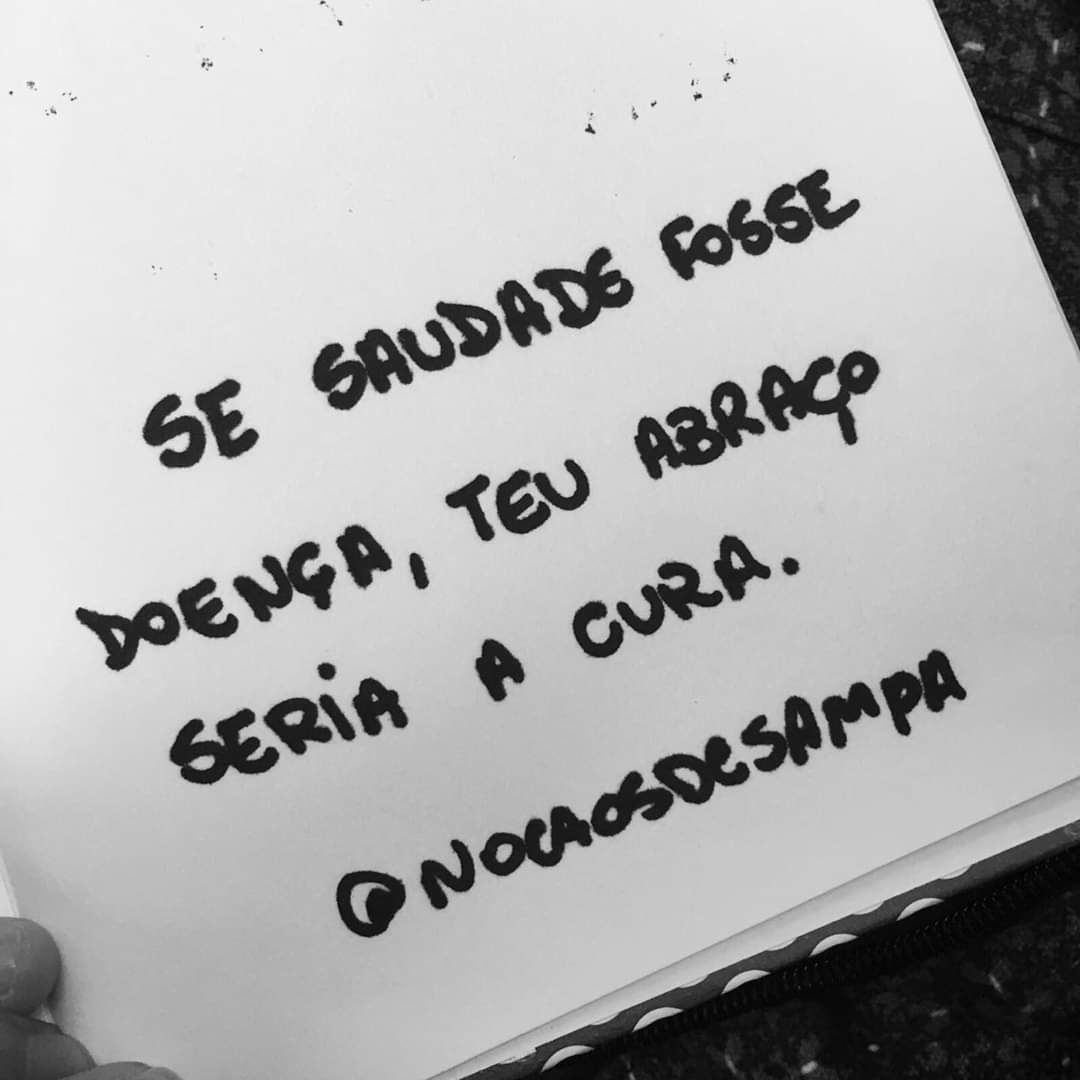 SE SAUDADE FOSSE
DOENÇA, TEU ABRAÇO
SERIA A CURA.
@NOCAOSDESAMPA